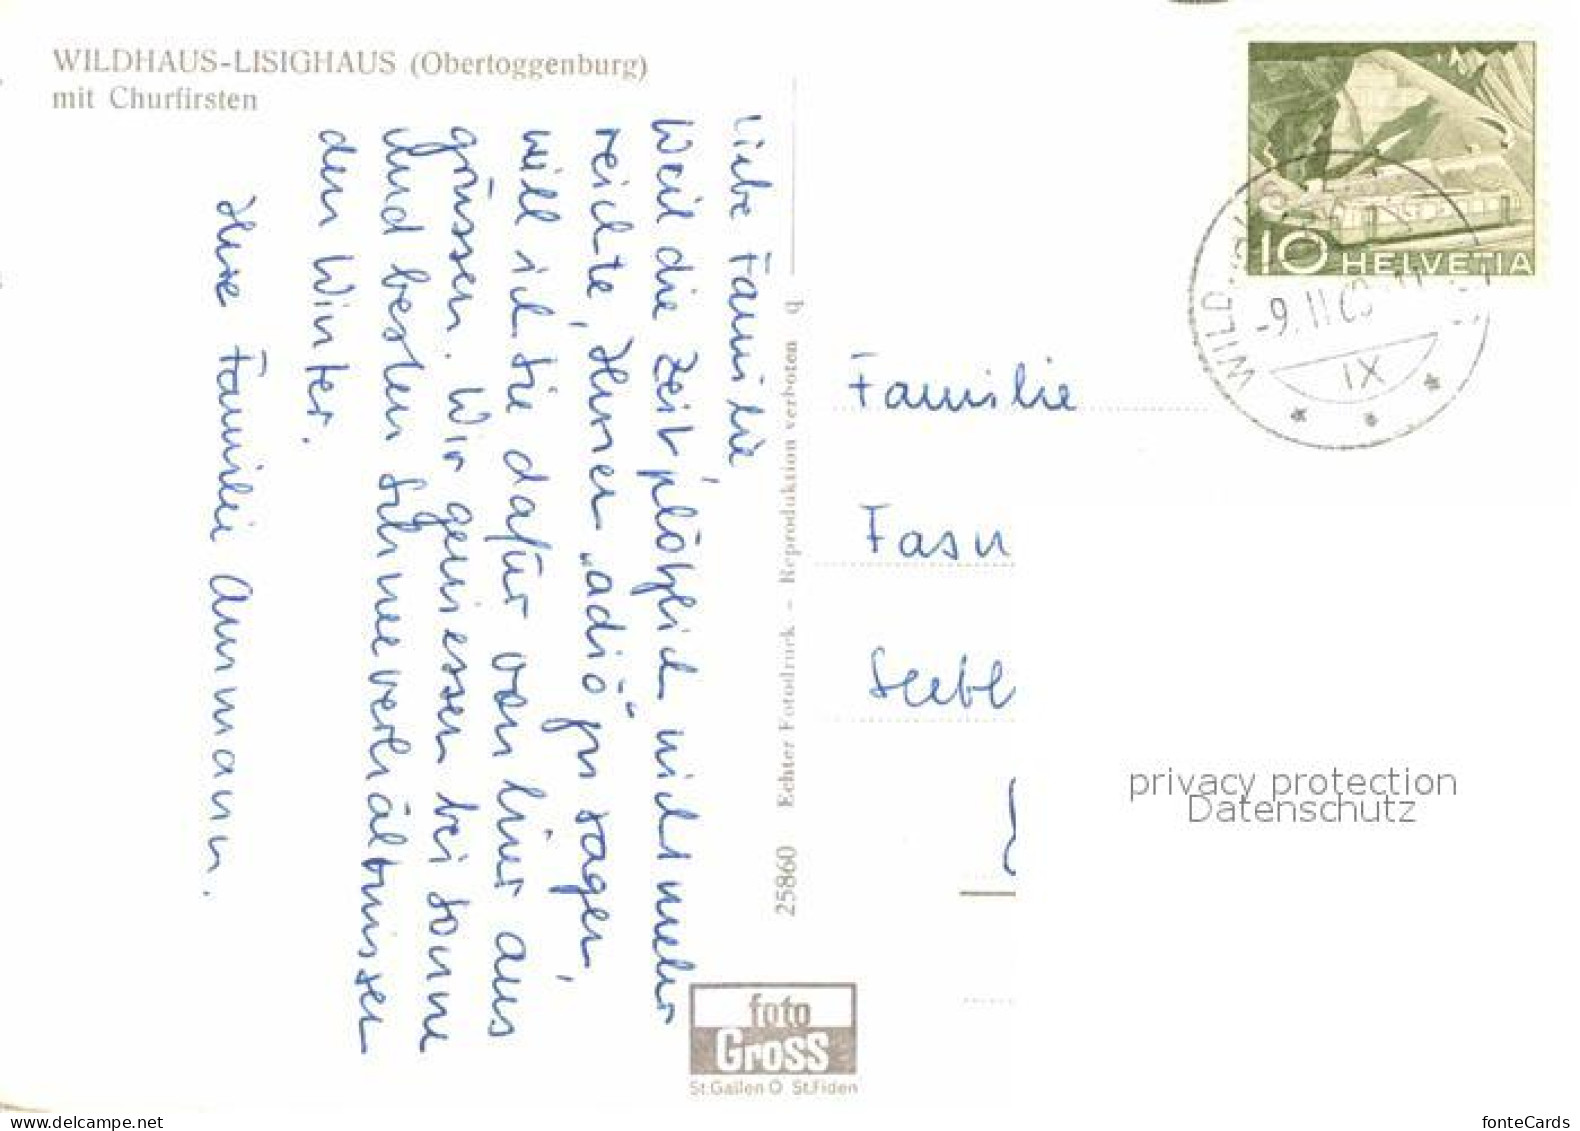 WILDHAUS-LISIGHAUS (Obertoggenburg)
mit Churfirsten
Liebe Familie
Weil die Zeit plötzlich nicht mehr
reichte, Ihnen „adiö" zu sagen,
will ich Sie dafür von hier aus
grüssen. Wir geniessen bei Sonne
und besten Schneeverhältnissen
den Winter.
Ihre Familie Ammann.
25860 Echter Fotodruck - Reproduktion verboten q
foto
Gross
St.Gallen O St.Fiden
10 HELVETIA
WILD
-9. II 6
IX
Familie
Fasn
Seebl
privacy protection
Datenschutz
fonteCards
www.delcampe.net